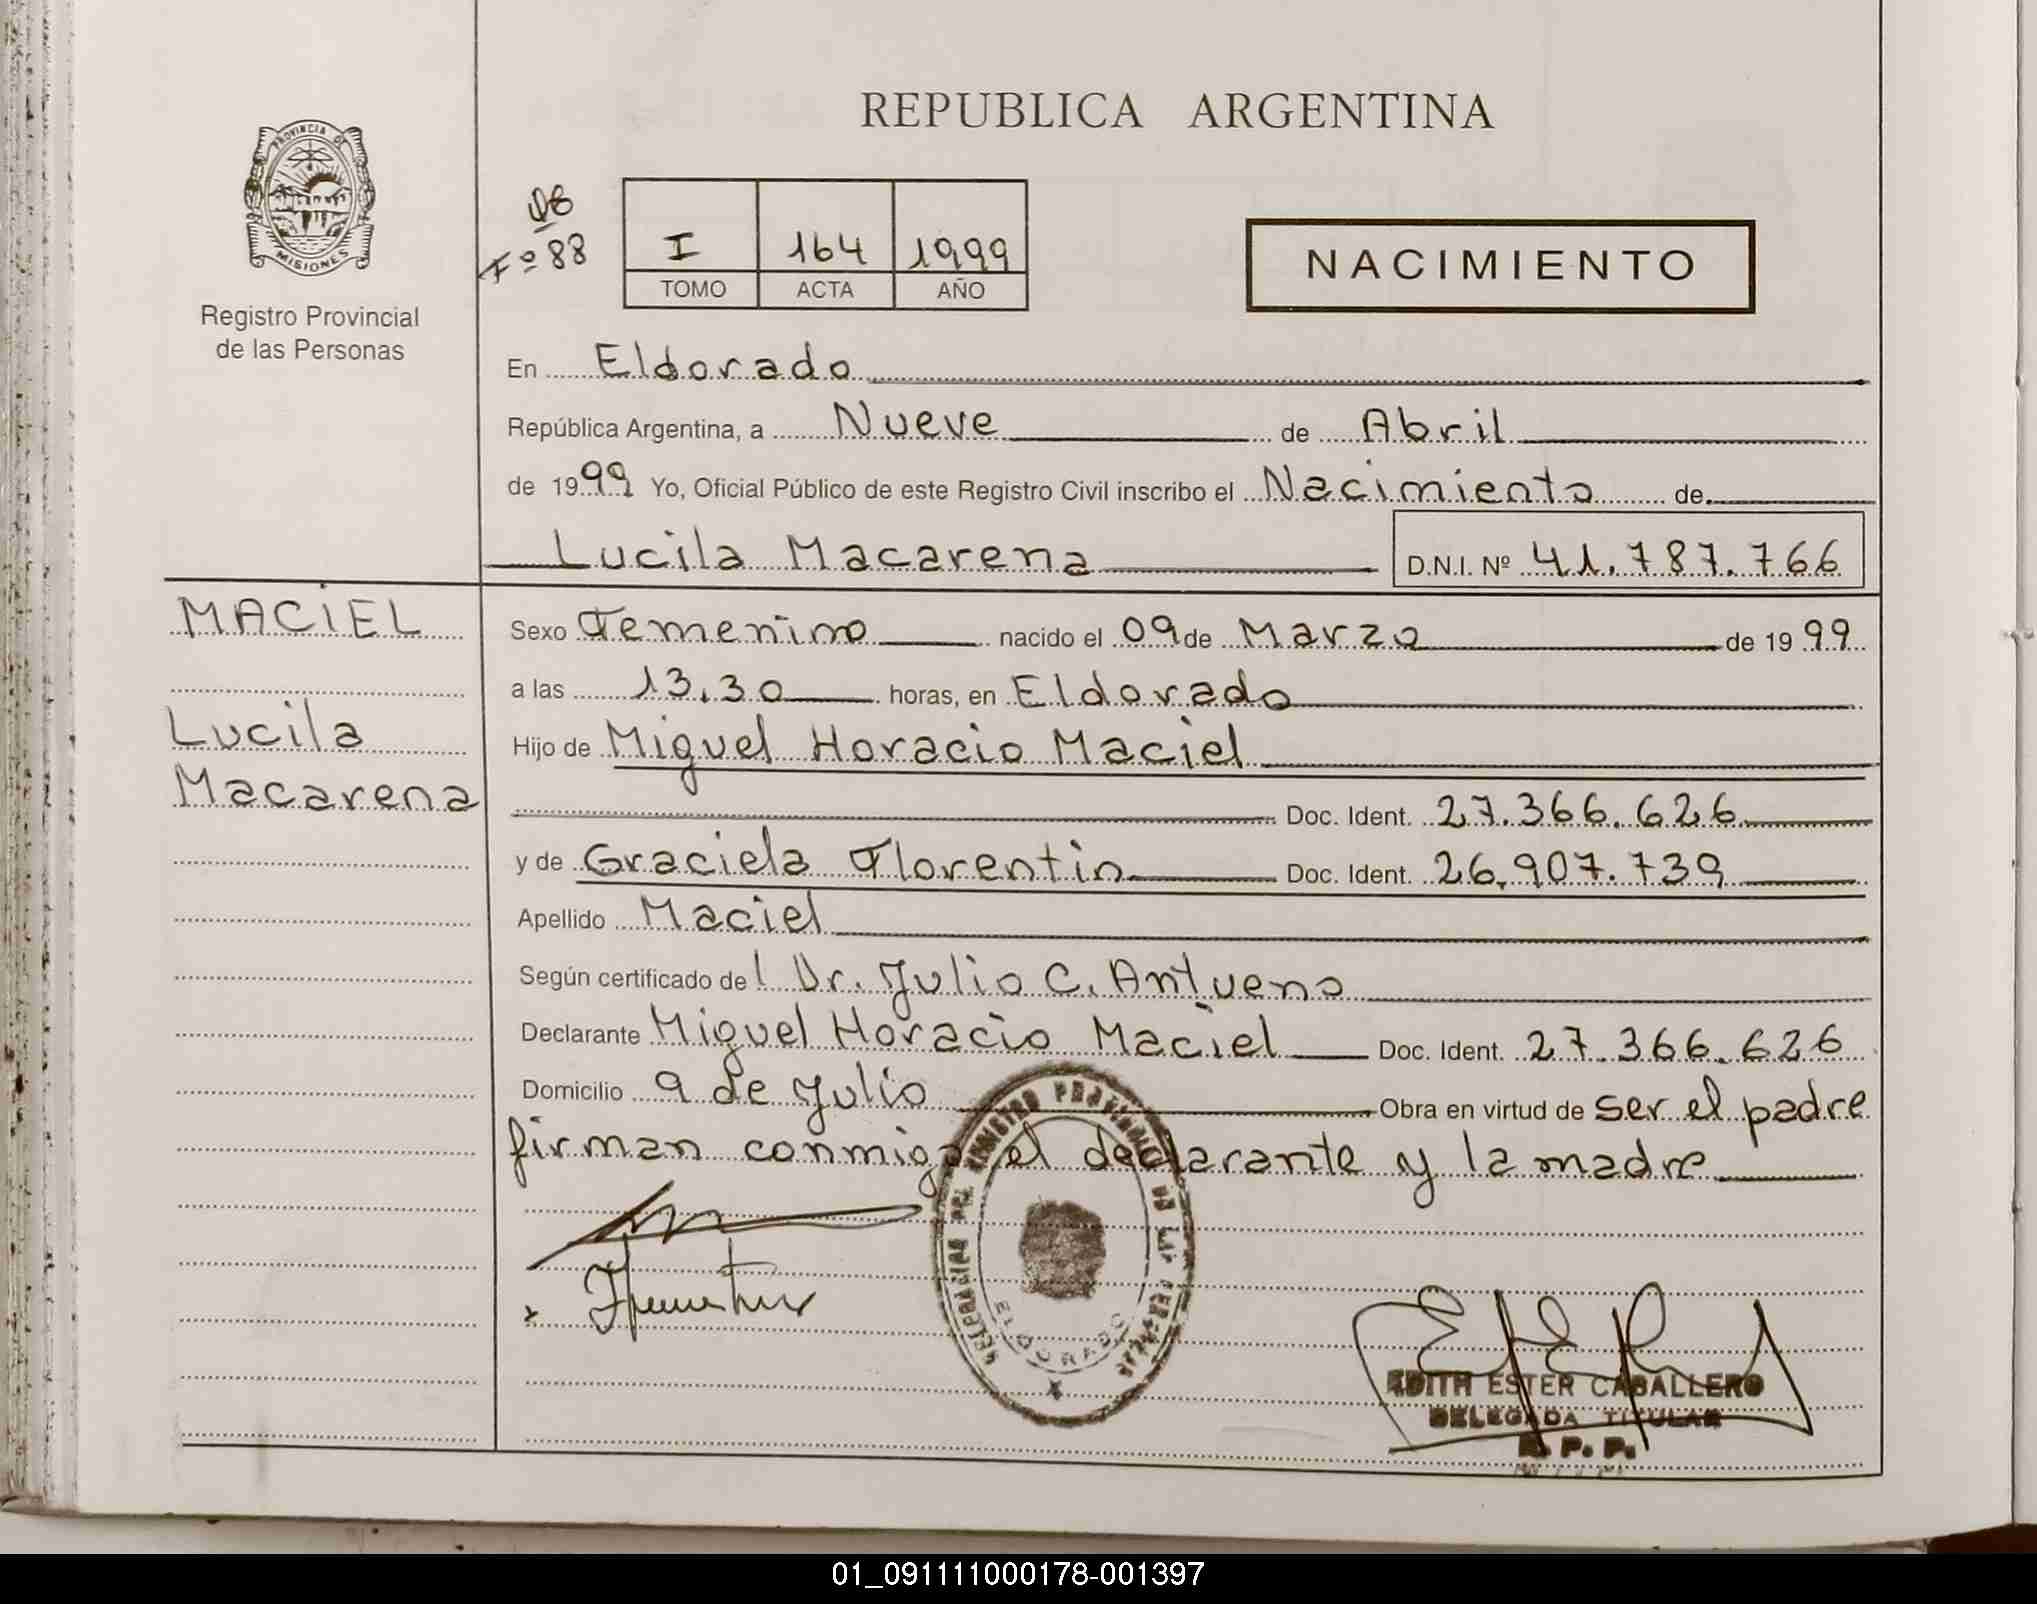 REPUBLICA ARGENTINA
PROVINCIA DE
MISIONES
Registro Provincial
de las Personas
Fº 88
I 164 1999
TOMO ACTA AÑO
NACIMIENTO
En Eldorado
República Argentina, a Nueve de Abril
de 1999 Yo, Oficial Público de este Registro Civil inscribo el Nacimiento de
Lucila Macarena D.N.I. Nº 41.787.766
MACIEL
Lucila
Macarena
Sexo Femenino nacido el 09 de Marzo de 1999
a las 13.30 horas, en Eldorado
Hijo de Miguel Horacio Maciel
Doc. Ident. 27.366.626
y de Graciela Florentin Doc. Ident. 26.907.739
Apellido Maciel
Según certificado del Dr. Julio C. Antueno
Declarante Miguel Horacio Maciel Doc. Ident. 27.366.626
Domicilio 9 de Julio Obra en virtud de ser el padre
firman conmigo el declarante y la madre
REGISTRO PROVINCIAL DE LAS PERSONAS
ELDORADO
EDITH ESTER CABALLERO
DELEGADA TITULAR
R. P. P.
01_091111000178-001397